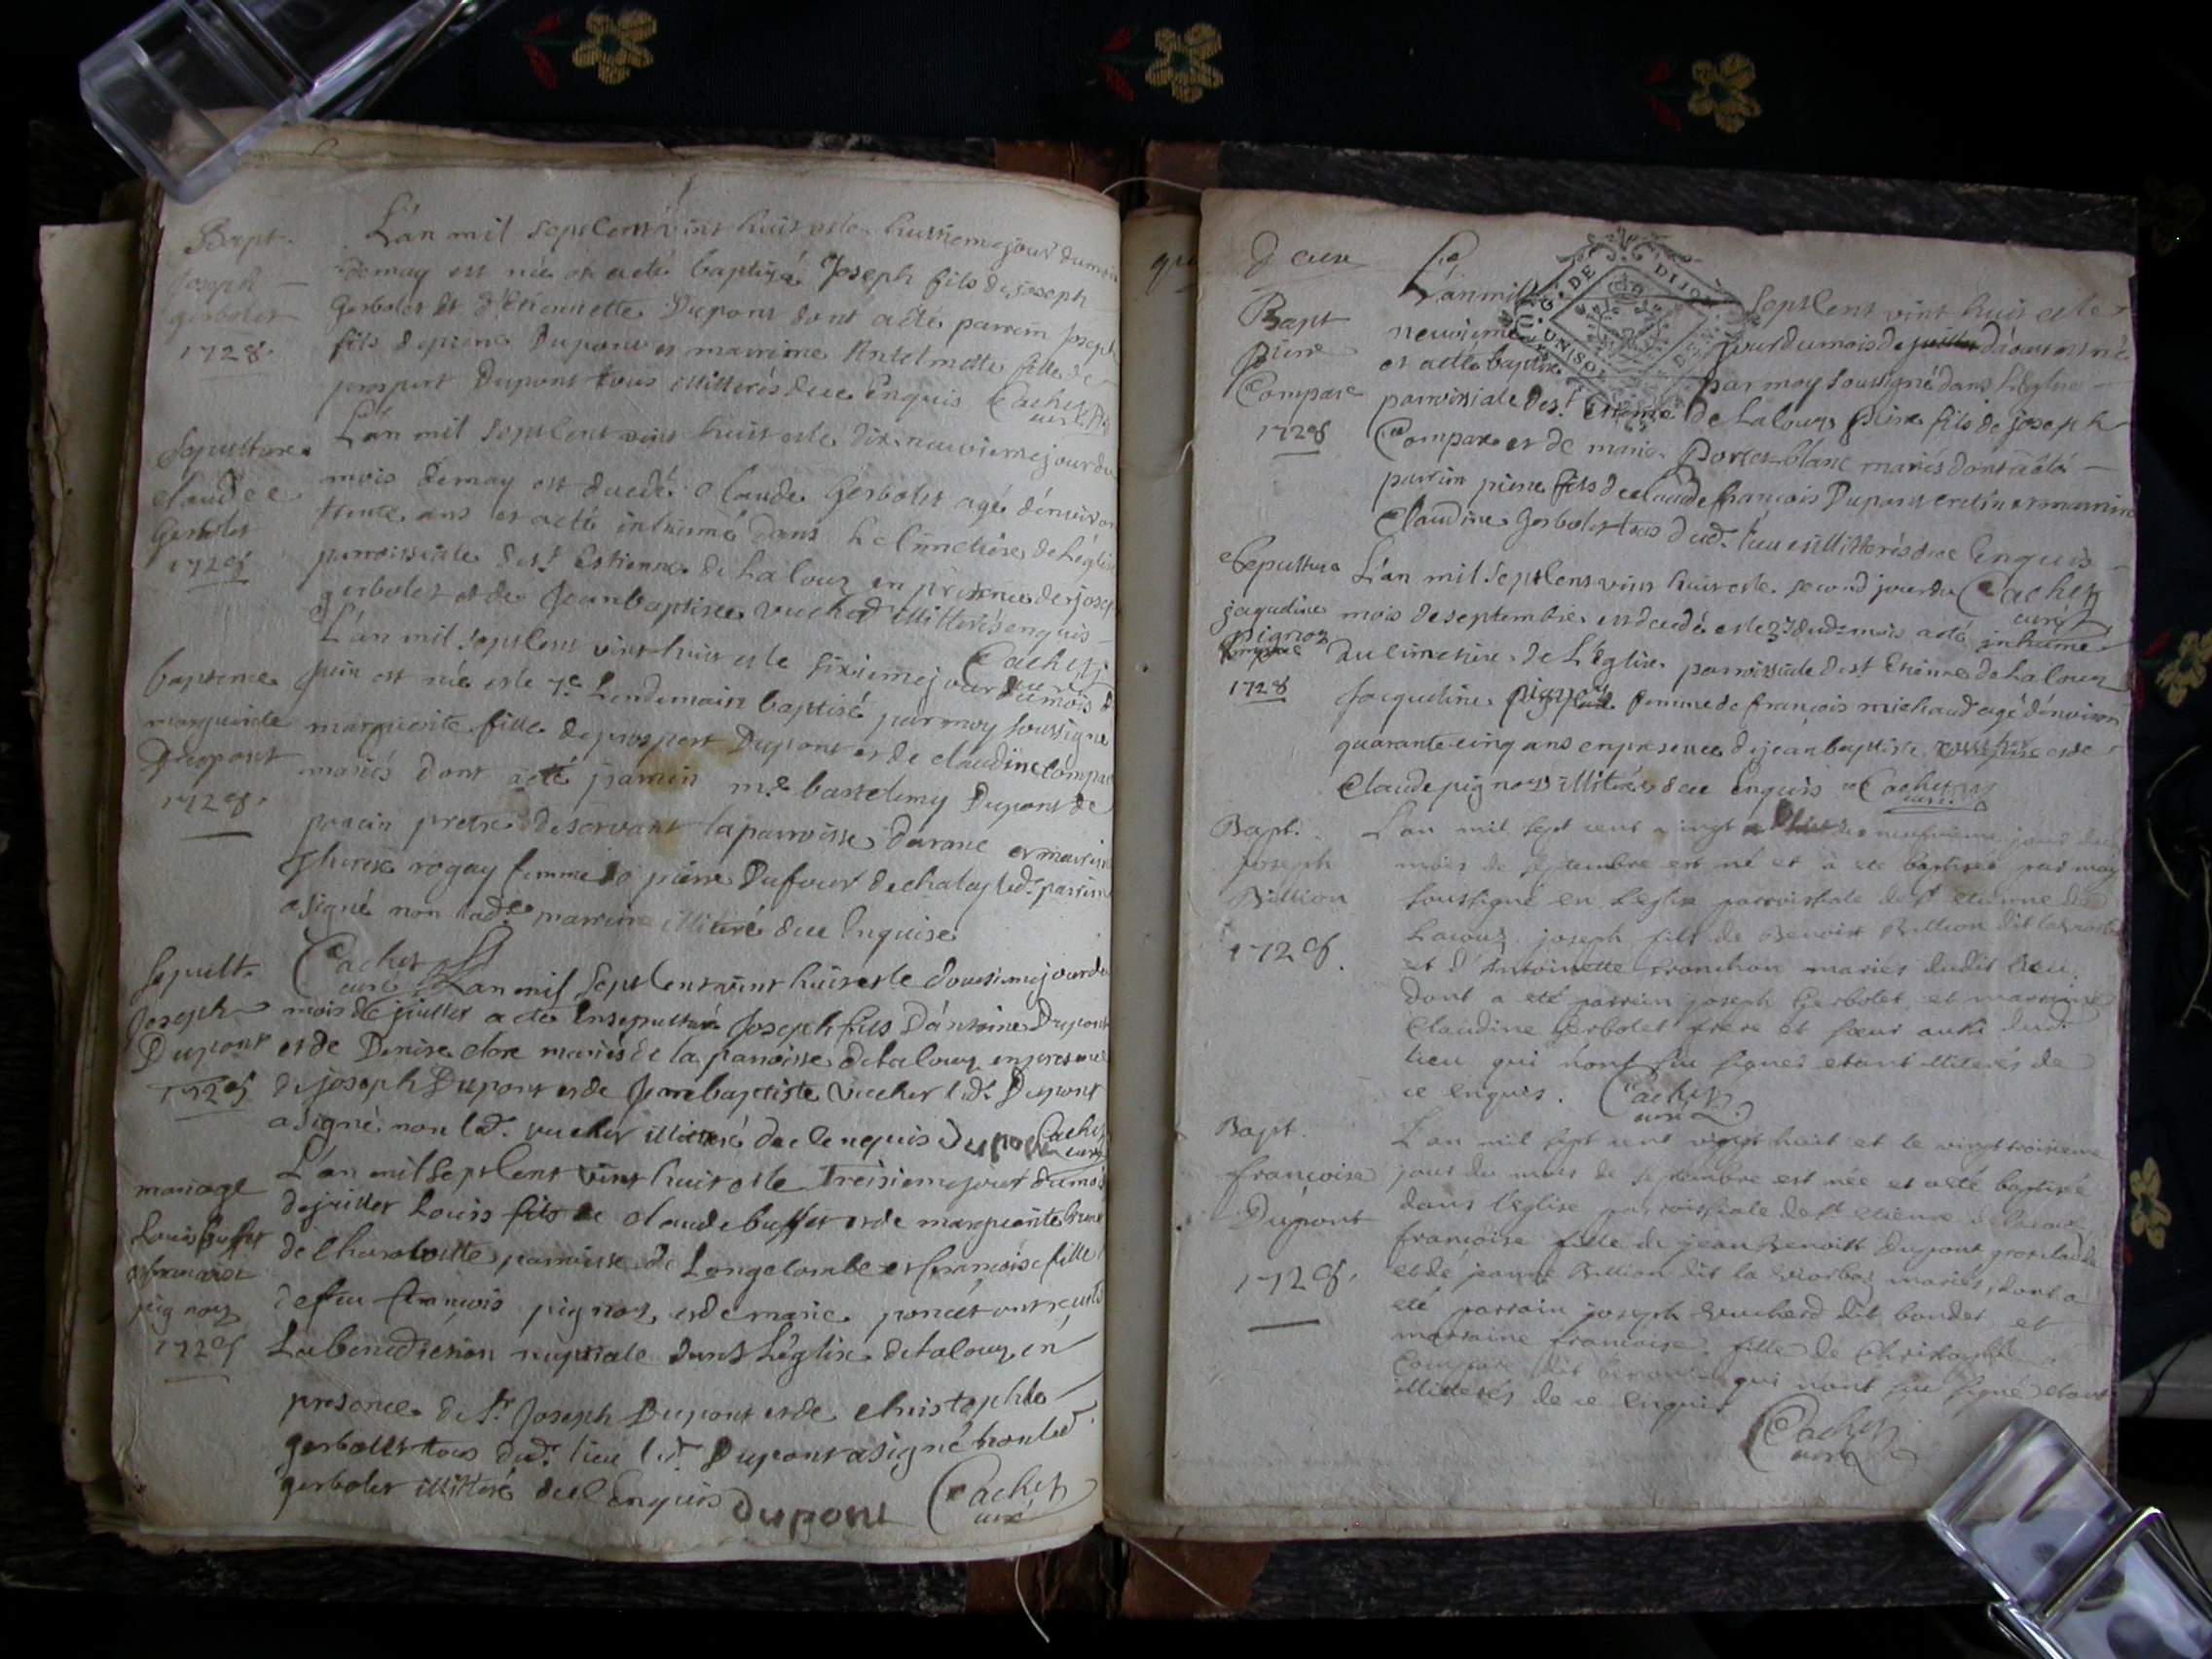 Bapt.
Joseph
gerbolet
1728.
L'an mil sept cent vint huit et le huitieme jour du mois
de may est née et a été baptizé Joseph fils de joseph
Gerbolet et d'Etiennette Dupont dont a été parrin Joseph
fils de pierre Dupont et marrine Antelmette fille de
prospert Dupont tous illitterés de ce enquis Cachet
curé
Sepulture
claude
Gerbolet
1728
L'an mil sept cent vint huit et le dix neuvieme jour du
mois de may est decedé claude Gerbolet agé d'environ
trente ans et a été inhumé dans le cimetiere de L'église
parroissiale de st Estienne de Lalouz en presence de josep
gerbolet et de Jean baptiste vucherd illitterés enquis
Cachet
curé
bapteme
marguerite
Dupont
1728.
L'an mil sept cent vint huit et le sixieme jour du mois d
juin est née et le 7e Lendemain baptisé par moy soussigné
marguerite fille de prospert Dupont et de claudine compare
mariés dont a été parrin me bartelemy Dupont de
poncin pretre deservant la parroisse darane et marrine
Therese rogay femme de pierre Dufour de chaley led. parrin
a signé non lade marrine illiteré de ce enquise
Cachet
curé
Sepult.
Joseph
Dupont
1728
L'an mil sept cent vint huit et le dousieme jour du
mois de juillet a été ensepulturé Joseph fils d'antoine Dupont
et de Denise clore mariés de la parroisse de Lalouz en presence
de joseph Dupont et de Jean baptiste vucher led. Dupont
a signé non led. vucher illitteré de ce enquis Dupont Cachet
curé
mariage
Louis buffet
et francoise
pignoz
1728
L'an mil sept cent vint huit et le Treisieme jour du mois
de juillet Louis fils de claude buffet et de marguerite
de Charolette parroisse de Longecombe et francoise fille
de feu francois pignoz et de marie poncet ont recus
La benediction nuptiale dans L'église de Lalouz en
presence de Sr Joseph Dupont et de christophle
gerbolet tous dud. lieu led. Dupont a signé non led
gerbolet illitteré de ce enquis Dupont Cachet
curé
qu
Deux
GE DE DIJON
Bapt
pierre
Compare
1728
L'an mil sept cent vint huit et le
neuvieme jour du mois de juillet d'aout est né
et a été baptisé par moy soussigné dans L'église
parroissiale de st Etienne de Lalouz pierre fils de joseph
Compare et de marie Porret-blanc mariés dont a été
parrin pierre fils de claude francois Dupont cretin et marrine
Claudine Gerbolet tous dud. lieu illitterés de ce enquis
Cachet
curé
Sepulture
jaqueline
pignoz
1728
L'an mil sept cent vint huit et le second jour du
mois de septembre est decedé et le 3e dud. mois a été inhumé
au cimetiere de L'église parroissiale de st Etienne de Lalouz
Jacqueline pignoz femme de francois michaud agé d'environ
quarante cinq ans en presence de jean baptiste et de
Claude pignoz illiterés de ce enquis Cachet
curé
Bapt.
Joseph
Billion
1728.
L'an mil sept cent vingt huit et le dix neufvieme jour du
mois de septembre est né et a eté baptisé par moy
soussigné en l'eglise parroissiale de st etienne de
Lalouz joseph fils de Benoist Billion dit
et d'Antoinette tronchon mariés dudit lieu.
Dont a eté parrain joseph Gerbolet et marraine
Claudine Gerbolet frere et sœur aussi dud.
lieu qui n'ont sçu signer etant illiterés de
ce enquis. Cachet
curé
Bapt.
francoise
Dupont
1728.
L'an mil sept cent vingt huit et le vingt troisieme
jour du mois de septembre est née et a eté baptisé
dans l'eglise parroissiale de st etienne de Lalouz
francoise fille de jean Benoist Dupont gros claude
et de jeanne Billion dit la mariés, dont a
eté parrain joseph vucherd dit boudet et
marraine francoise fille de Christophle
Compare dit qui n'ont sçu signé etant
illiterés de ce enquis
Cachet
curé